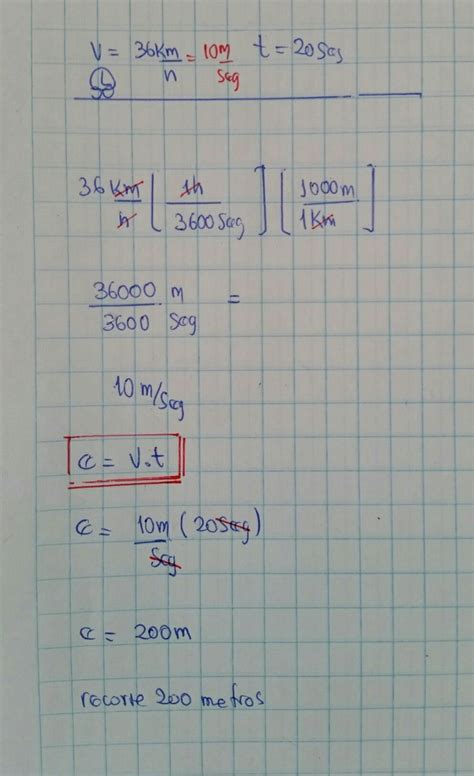 V = 36Km/h = 10m/Seg t = 20Seg
36 Km/h [1h/3600Seg] [1000m/1Km]
36000 m/3600 Seg =
10 m/Seg
d = V.t
d = 10m/Seg (20Seg)
d = 200m
recorre 200 metros